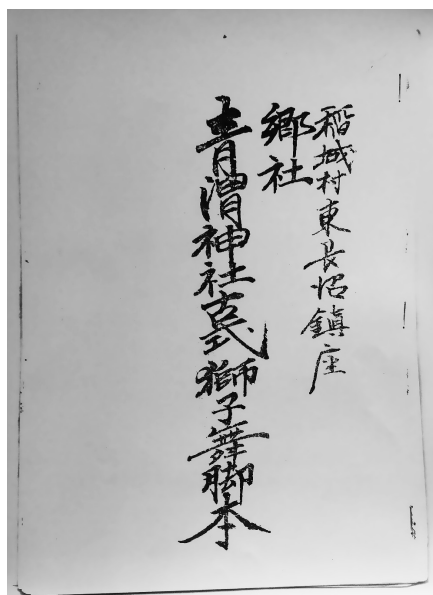 稲城村東長沼鎮座
郷社
青渭神社古式獅子舞脚本